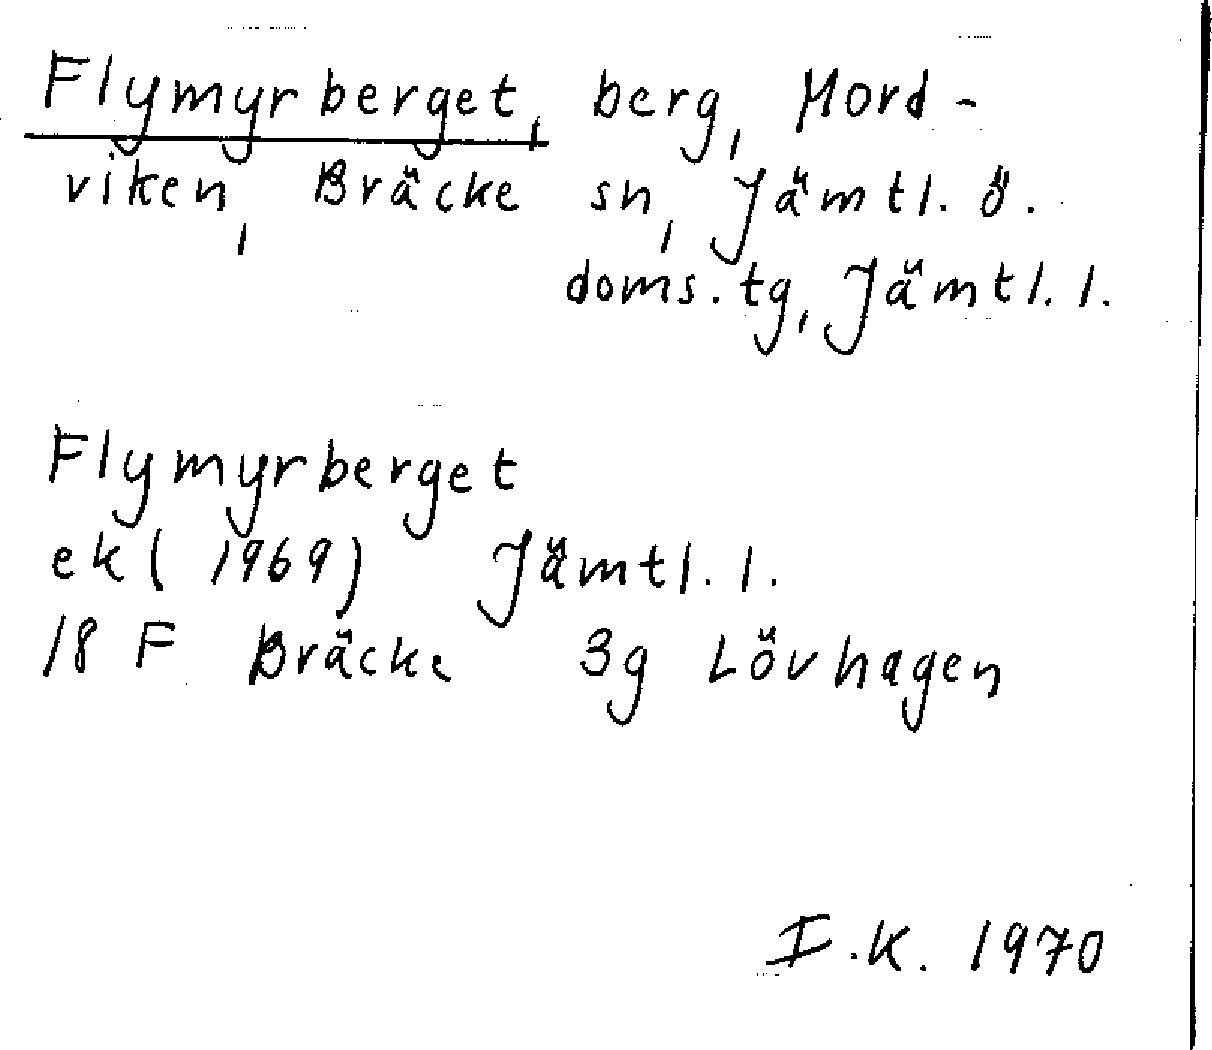 Flymyrberget, berg, Mord-
viken, Bräcke sn, Jämtl. ö.
doms. tg, Jämtl. l.
Flymyrberget
ek (1969) Jämtl. l.
18 F Bräcke 3g Lövhagen
I.K. 1970